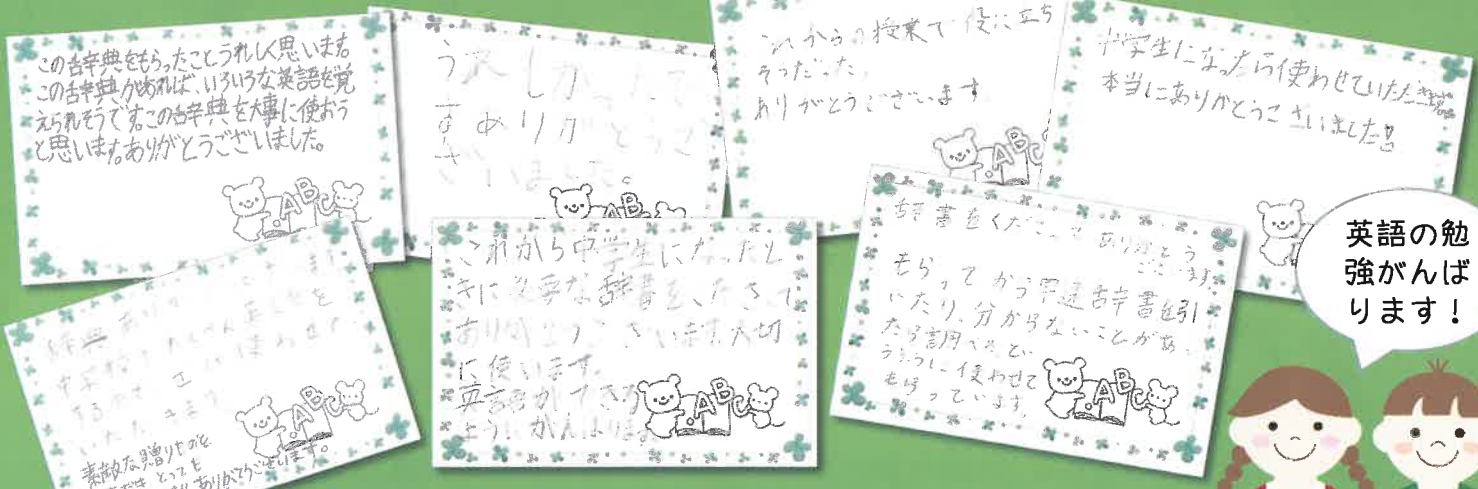 この辞典をもらったことうれしく思います。
この辞典があれば、いろいろな英語を覚
えられそうです。この辞典を大事に使おう
と思います。ありがとうございました。
うれしかったで
す ありがとうご
ざいました。
これからの授業で役に立ち
そうだった。
ありがとうございます
中学生になったら使わせていただきます。
本当にありがとうございました!!
辞典ありがとうございます
中学校でたくさん英語を
いただきます
素敵な贈りものを
とっても
ありがとうございます。
これから中学生になったと
きに必要な辞書をくださって
ありがとうございます。大切
に使います。
英語ができる
ようにがんばります。
辞書をくださって ありがとう
ございます。
もらってから早速辞書を引
いたり、分からないことがあっ
たら調べたりとい
うふうに使わせて
もらっています。
ABC
ABC
ABC
ABC
ABC
英語の勉
強がんば
ります！